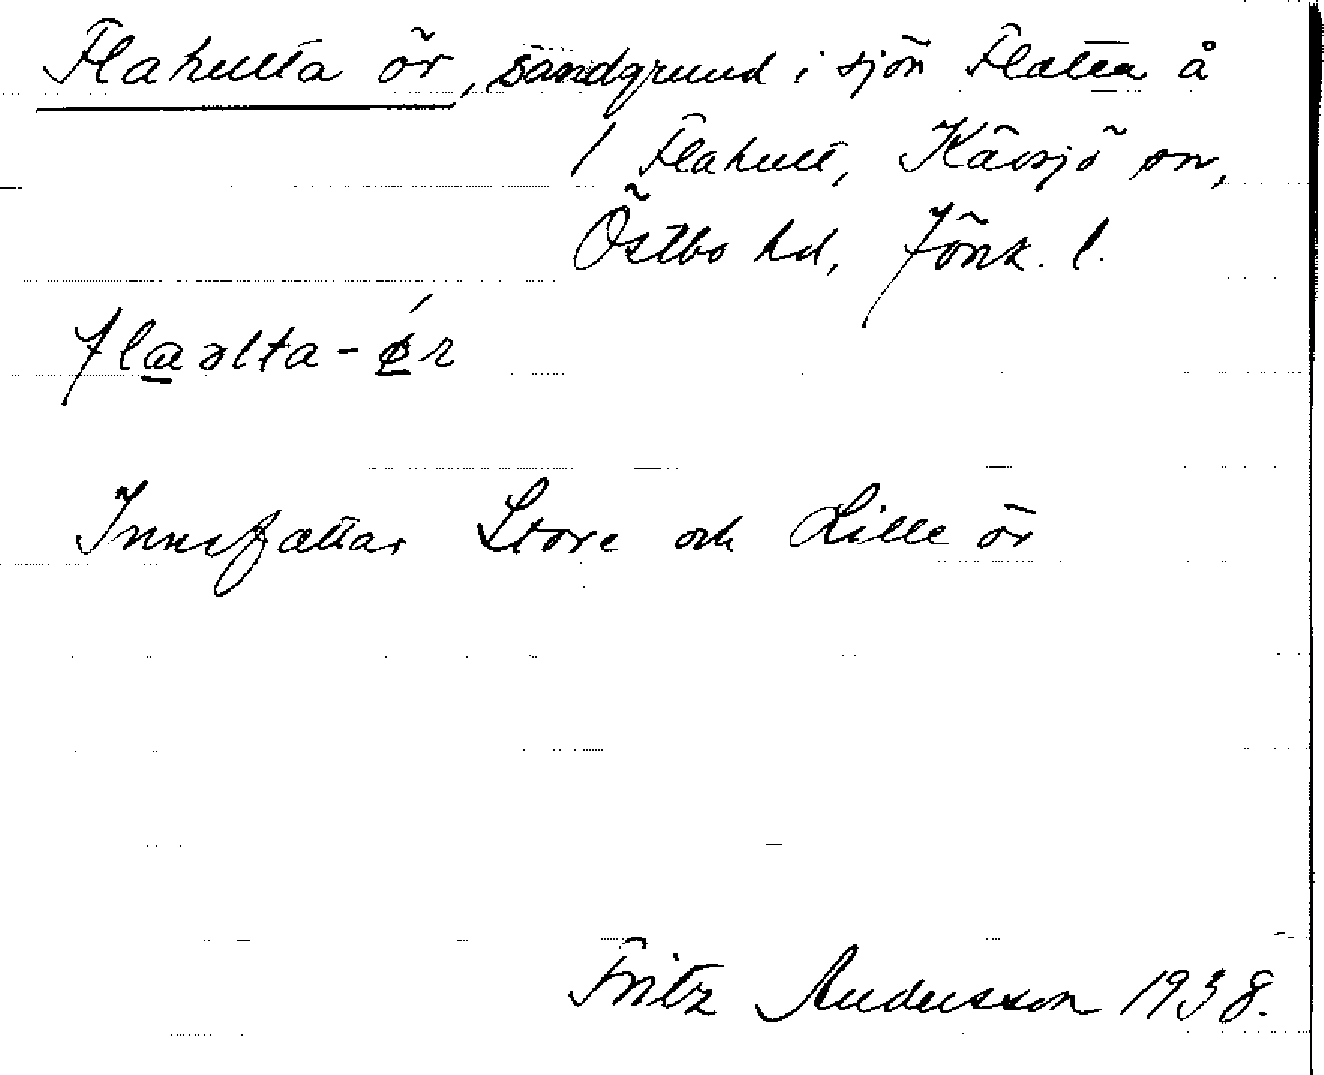 Flahulta ör, sandgrund i sjön Flaten å
1 Flahult, Kävsjö sn,
Östbo hd, Jönk. l.
flaəlta-ǿr
Innefattar Store och Lille ör
Fritz Andersson 1938.